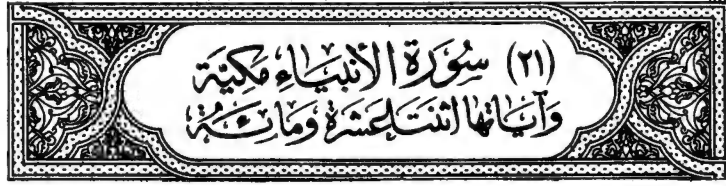 (٢١) سُورَةُ الأَنْبِيَاءِ مَكِيَّة
وَآيَاتُهَا اثْنَتَا عَشَرَةَ وَمَائَة